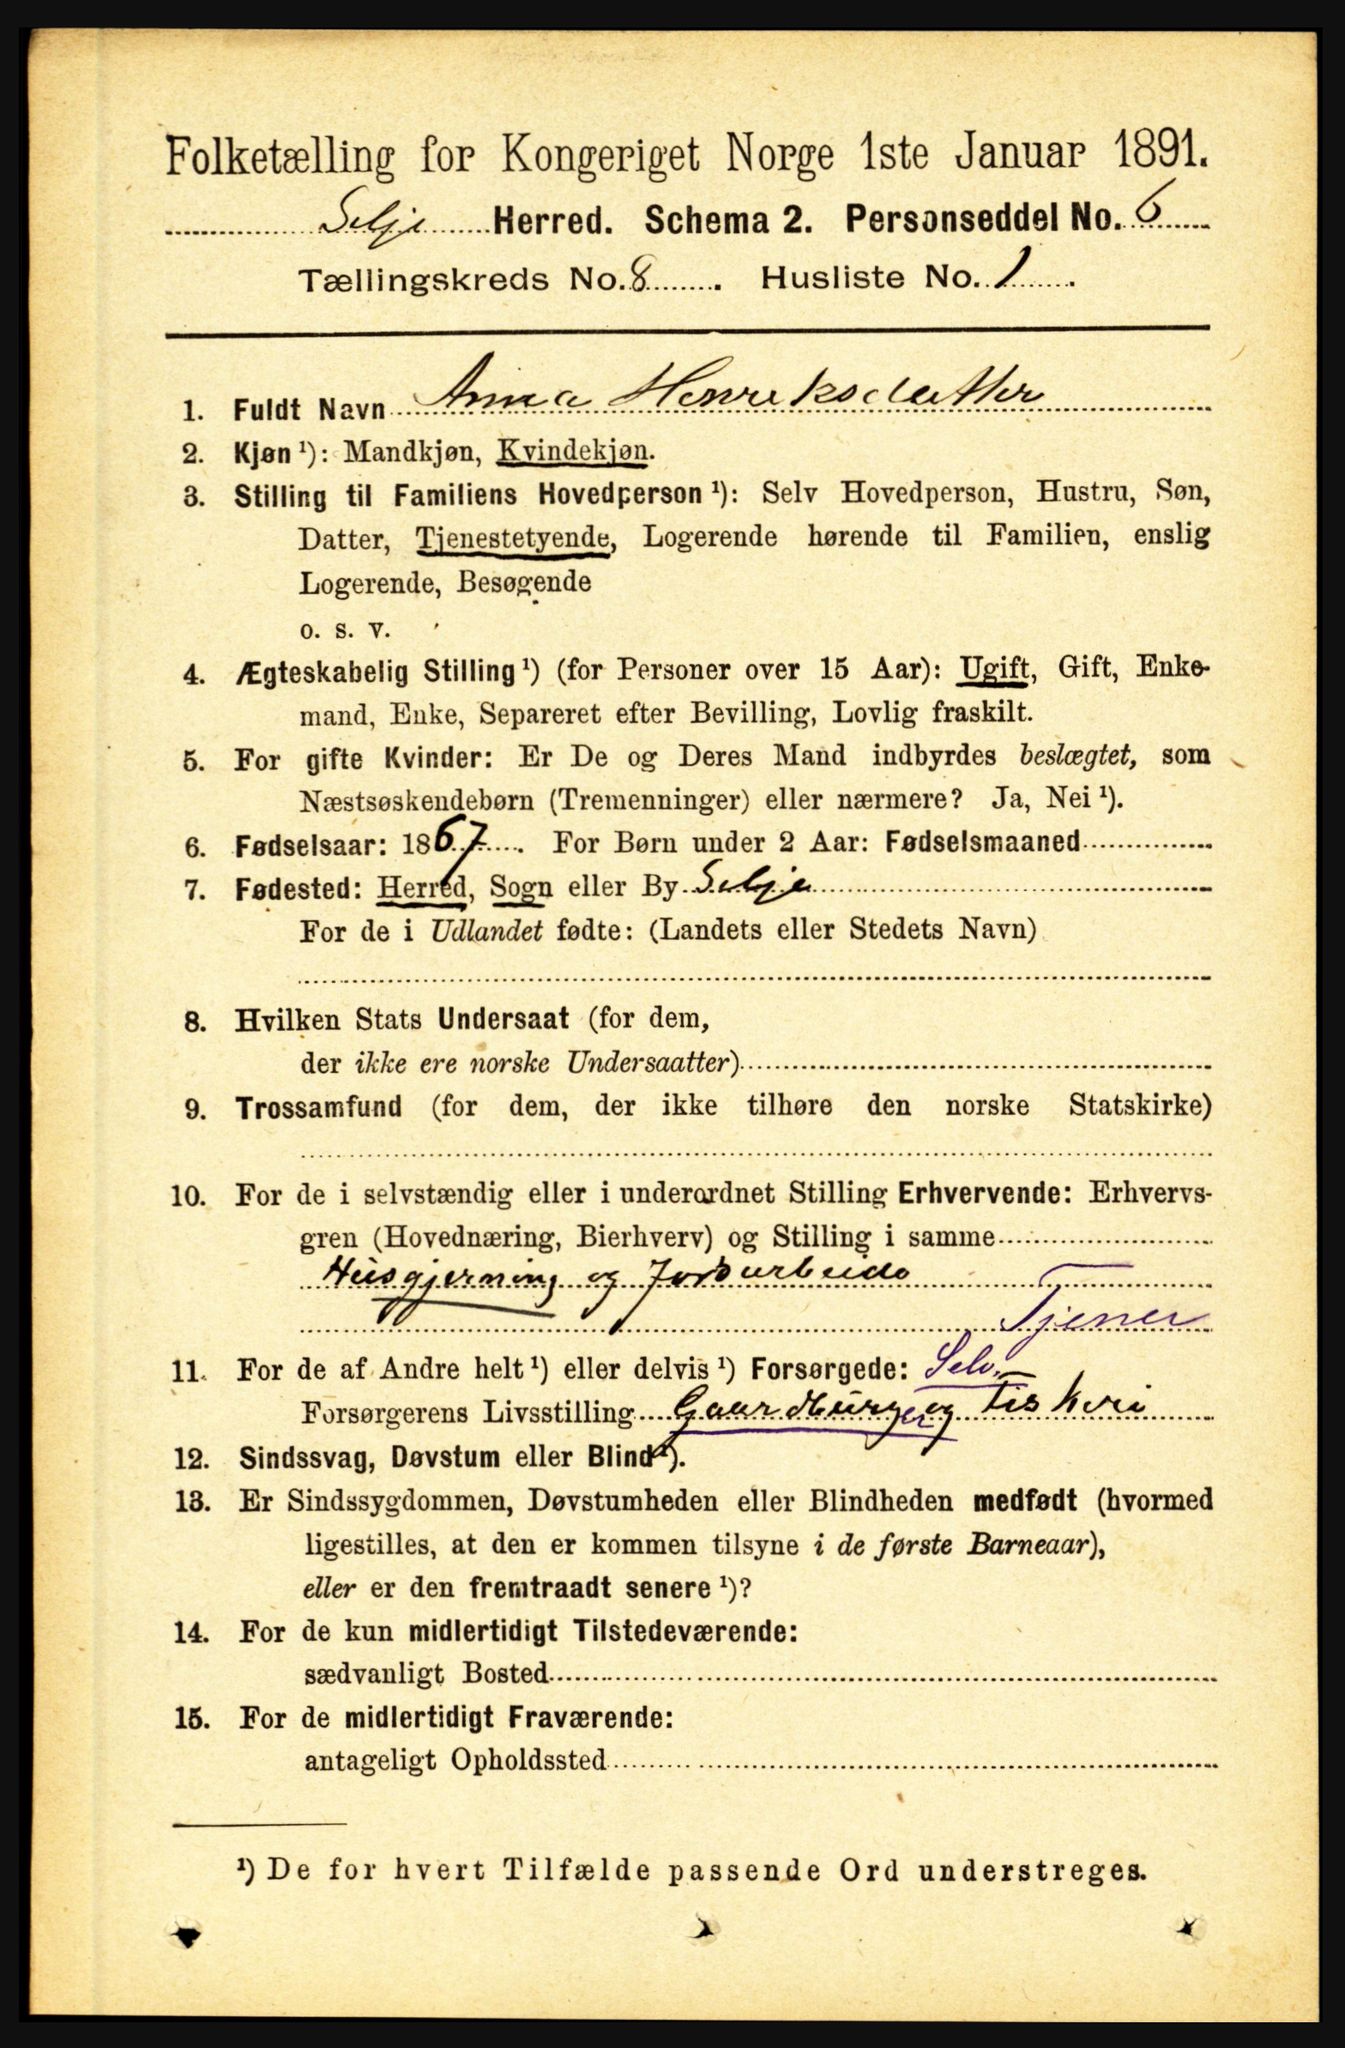 Folketælling for Kongeriget Norge 1ste Januar 1891.
Selje Herred. Schema 2. Personseddel No. 6
Tællingskreds No. 8. Husliste No. 1.
1. Fuldt Navn Anna Henriksdatter
2. Kjøn ¹): Mandkjøn, Kvindekjøn.
3. Stilling til Familiens Hovedperson ¹): Selv Hovedperson, Hustru, Søn,
Datter, Tjenestetyende, Logerende hørende til Familien, enslig
Logerende, Besøgende
o. s. v.
4. Ægteskabelig Stilling ¹) (for Personer over 15 Aar): Ugift, Gift, Enke-
mand, Enke, Separeret efter Bevilling, Lovlig fraskilt.
5. For gifte Kvinder: Er De og Deres Mand indbyrdes beslægtet, som
Næstsøskendebørn (Tremenninger) eller nærmere? Ja, Nei ¹).
6. Fødselsaar: 1867. For Børn under 2 Aar: Fødselsmaaned
7. Fødested: Herred, Sogn eller By Selje
For de i Udlandet fødte: (Landets eller Stedets Navn)
8. Hvilken Stats Undersaat (for dem,
der ikke ere norske Undersaatter)
9. Trossamfund (for dem, der ikke tilhøre den norske Statskirke)
10. For de i selvstændig eller i underordnet Stilling Erhvervende: Erhvervs-
gren (Hovednæring, Bierhverv) og Stilling i samme
Husgjerning og Jordarbeide
Tjener
11. For de af Andre helt ¹) eller delvis ¹) Forsørgede: Selv.
Forsørgerens Livsstilling Gaardbruger og Fiskeri
12. Sindssvag, Døvstum eller Blind ¹).
13. Er Sindssygdommen, Døvstumheden eller Blindheden medfødt (hvormed
ligestilles, at den er kommen tilsyne i de første Barneaar),
eller er den fremtraadt senere ¹)?
14. For de kun midlertidigt Tilstedeværende:
sædvanligt Bosted
15. For de midlertidigt Fraværende:
antageligt Opholdssted
¹) De for hvert Tilfælde passende Ord understreges.